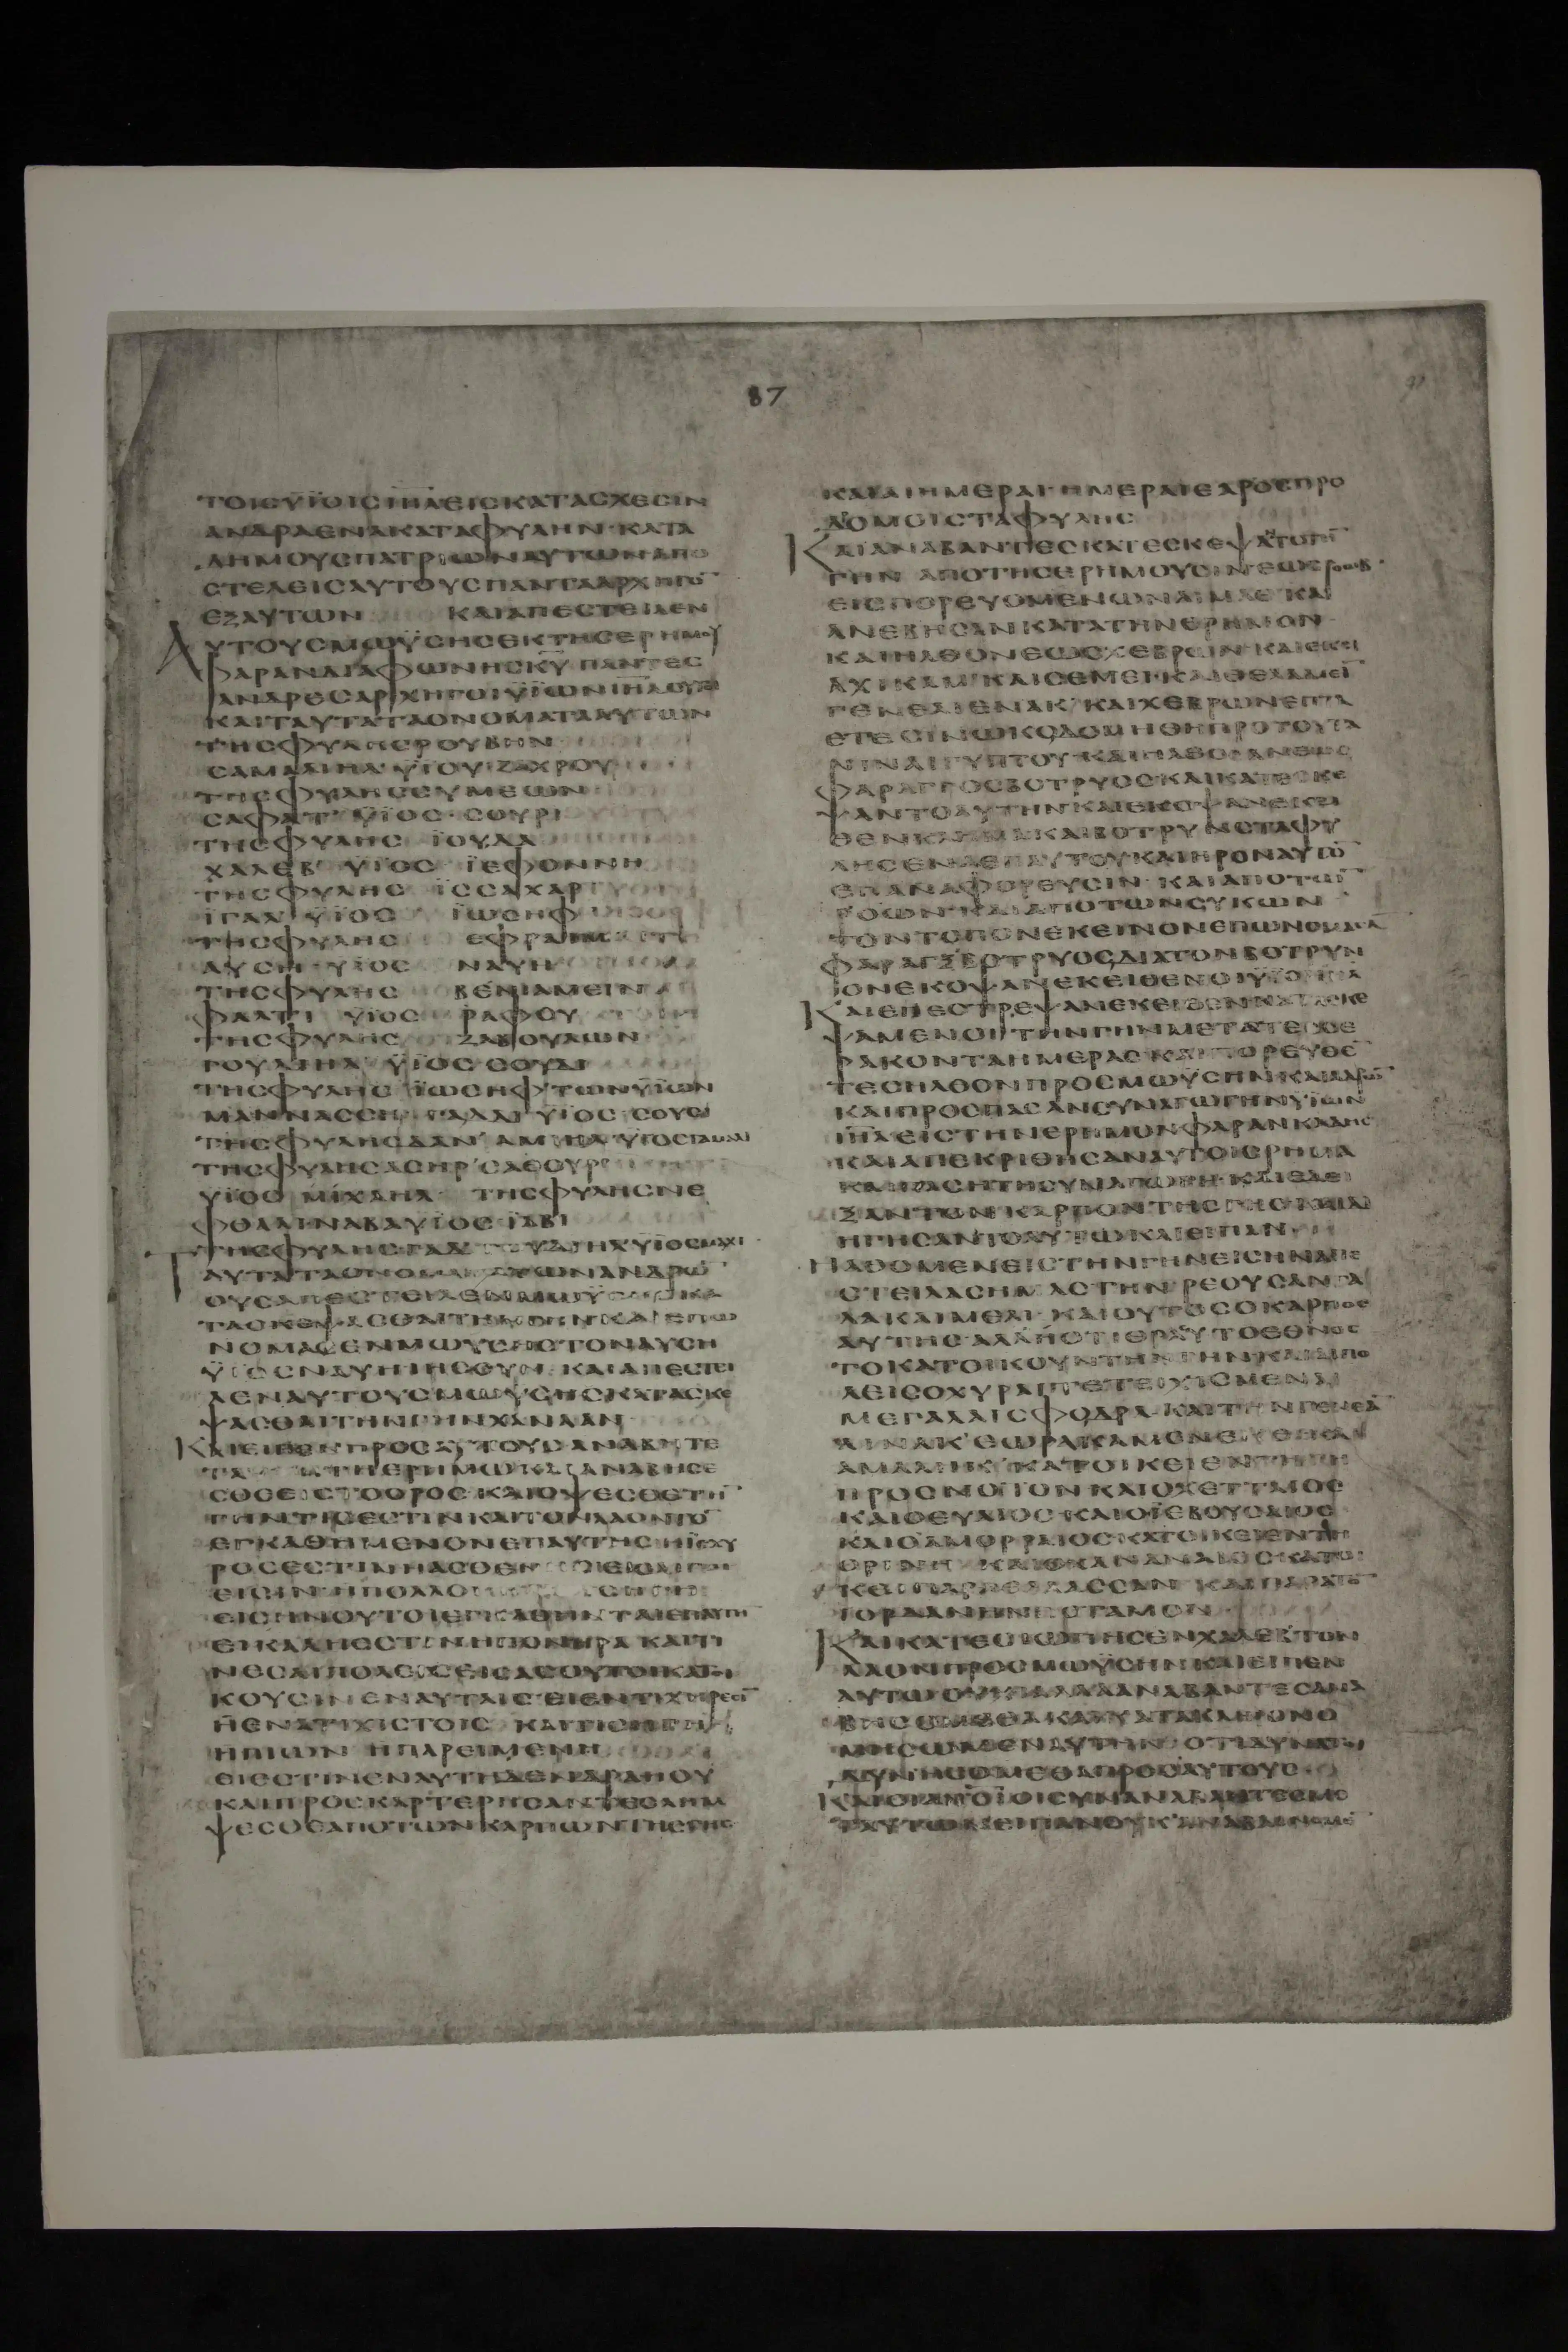 87
ΤΟΙΣΥΪΟΙΣΙΗΛΕΙΣΚΑΤΑΣΧΕΣΙΝ
ΑΝΔΡΑΕΝΑΚΑΤΑΦΥΛΗΝ·ΚΑΤΑ
ΔΗΜΟΥΣΠΑΤΡΙΩΝΑΥΤΩΝΑΠΟ
ΣΤΕΛΕΙΣΑΥΤΟΥΣΠΑΝΤΑΑΡΧΗΓΟ̅
ΕΞΑΥΤΩΝ ΚΑΙΑΠΕΣΤΕΙΛΕΝ
ΑΥΤΟΥΣΜΩΫΣΗΣΕΚΤΗΣΕΡΗΜΟΥ
ΦΑΡΑΝΔΙΑΦΩΝΗΣΚΥ ΠΑΝΤΕΣ
ΑΝΔΡΕΣΑΡΧΗΓΟΙΫΪΩΝΙΗΛΟΥΤΟΙ
ΚΑΙΤΑΥΤΑΤΑΟΝΟΜΑΤΑΑΥΤΩΝ
ΤΗΣΦΥΛΗΣΡΟΥΒΗΝ
ΣΑΜΑΛΙΗΛ ΫΪΟΥ ΖΑΧΡΟΥ
ΤΗΣΦΥΛΗΣΣΥΜΕΩΝ
ΣΑΦΑΤ ΫΪΟΣ ΣΟΥΡΙ
ΤΗΣΦΥΛΗΣ ΪΟΥΔΑ
ΧΑΛΕΒ ΫΪΟΣ ΪΕΦΟΝΝΗ
ΤΗΣΦΥΛΗΣ ΪΣΣΑΧΑΡ
ΪΓΑΛ ΫΪΟΣ ΪΩΣΗΦ
ΤΗΣΦΥΛΗΣ ΕΦΡΑΙΜ
ΑΥΣΗ ΥΪΟΣ ΝΑΥΗ
ΤΗΣΦΥΛΗΣ ΒΕΝΙΑΜΕΙΝ
ΦΑΛΤΙ ΥΪΟΣ ΡΑΦΟΥ
ΤΗΣΦΥΛΗΣ ΖΑΒΟΥΛΩΝ
ΓΟΥΔΙΗΛ ΫΪΟΣ ΣΟΥΔΙ
ΤΗΣΦΥΛΗΣ ΪΩΣΗΦΤΩΝΥΪΩΝ
ΜΑΝΝΑΣΣΗ ΓΑΔΔΙ ΥΪΟΣ ΣΟΥΣΙ
ΤΗΣΦΥΛΗΣΔΑΝ ΑΜΙΗΛ ΥΪΟΣΓΑΜΑΛΙ
ΤΗΣΦΥΛΗΣΑΣΗΡ ΣΑΘΟΥΡ
ΥΪΟΣ ΜΙΧΑΗΛ ΤΗΣΦΥΛΗΣΝΕ
ΦΘΑΛΙΝΑΒΑΥΪΟΣ ΪΑΒΙ
ΤΗΣΦΥΛΗΣΓΑΔ ΓΟΥΔΙΗΛΥΪΟΣΜΑΧΙ
ΤΑΥΤΑΤΑΟΝΟΜΑΤΑΤΩΝΑΝΔΡΩ̅
ΟΥΣΑΠΕΣΤΕΙΛΕΝΜΩΥΣΗΣΚΑ
ΤΑΣΚΕΨΑΣΘΑΙΤΗΝΓΗΝΚΑΙΕΠΩ
ΝΟΜΑΣΕΝΜΩΥΣΗΣΤΟΝΑΥΣΗ
ΫΪΟΝΝΑΥΗΙΗΣΟΥΝ ΚΑΙΑΠΕΣΤΕΙ
ΛΕΝΑΥΤΟΥΣΜΩΥΣΗΣΚΑΤΑΣΚΕ
ΨΑΣΘΑΙΤΗΝΓΗΝΧΑΝΑΑΝ
ΚΑΙΕΙΠΕΝΠΡΟΣΑΥΤΟΥΣΑΝΑΒΗΤΕ
ΤΑΥΤΗΤΗΕΡΗΜΩΚΑΙΑΝΑΒΗΣΕ
ΣΘΕΕΙΣΤΟΟΡΟΣ ΚΑΙΟΨΕΣΘΕΤΗ̅
ΓΗΝΤΙΣΕΣΤΙΝΚΑΙΤΟΝΛΑΟΝΤΟ̅
ΕΓΚΑΘΗΜΕΝΟΝΕΠΑΥΤΗΣ ΗΪΣΧΥ
ΡΟΣΕΣΤΙΝΗΑΣΘΕΝ
ΕΙΣΙΝΗΠΟΛΛΟΙ
ΕΙΣΗΝΟΥΤΟΙΕΓΚΑΘΗΝΤΑΙΕΠΑΥΤΗ
ΕΙΚΑΛΗΕΣΤΙΝΗΠΟΝΗΡΑ ΚΑΙΤΙ
ΝΕΣΑΙΠΟΛΕΙΣΕΙΣΑΣΟΥΤΟΙΚΑΤΟΙ
ΚΟΥΣΙΝΕΝΑΥΤΑΙΣ ΕΙΕΝΤΙΧΗΡΕΣΙ̅
ΗΕΝΑΤΙΧΙΣΤΟΙΣ ΚΑΙΤΙΣΗΓΗ
ΗΠΙΩΝ ΗΠΑΡΕΙΜΕΝΗ
ΕΙΕΣΤΙΝΕΝΑΥΤΗΔΕΝΔΡΑΗΟΥ
ΚΑΙΠΡΟΣΚΑΡΤΕΡΗΣΑΝΤΕΣΛΗΜ
ΨΕΣΘΕΑΠΟΤΩΝΚΑΡΠΩΝΤΗΣΓΗΣ
ΚΑΙΑΙΗΜΕΡΑΙΗΜΕΡΑΙΕΑΡΟΣΠΡΟ
ΔΡΟΜΟΙΣΤΑΦΥΛΗΣ
ΚΑΙΑΝΑΒΑΝΤΕΣΚΑΤΕΣΚΕΨΑΝΤΟΤΗ̅
ΓΗΝ ΑΠΟΤΗΣΕΡΗΜΟΥΣΙΝΕΩΣΡΟΩΒ
ΕΙΣΠΟΡΕΥΟΜΕΝΩΝΑΙΜΑΘ ΚΑΙ
ΑΝΕΒΗΣΑΝΚΑΤΑΤΗΝΕΡΗΜΟΝ
ΚΑΙΗΛΘΟΝΕΩΣΧΕΒΡΩΝ ΚΑΙΕΚΕΙ
ΑΧΙΚΑΜ ΚΑΙΣΕΜΕΙ ΚΑΙΘΕΛΑΜΕΙ̅
ΓΕΝΕΑΙΕΝΑΚ ΚΑΙΧΕΒΡΩΝΕΠΤΑ
ΕΤΕΣΙΝΩΚΟΔΟΜΗΘΗΠΡΟΤΟΥΤΑ
ΝΙΝΑΙΓΥΠΤΟΥ ΚΑΙΗΛΘΟΣΑΝΕΩΣ
ΦΑΡΑΓΓΟΣΒΟΤΡΥΟΣΚΑΙΚΑΤΕΣΚΕ
ΨΑΝΤΟΑΥΤΗΝΚΑΙΕΚΟΨΑΝΕΚΕΙ
ΘΕΝΚΛΗΜΑΚΑΙΒΟΤΡΥΝΣΤΑΦΥ
ΛΗΣΕΝΑΕΠΑΥΤΟΥΚΑΙΗΡΟΝΑΥΤΟ̅
ΕΠΑΝΑΦΟΡΕΥΣΙΝ ΚΑΙΑΠΟΤΩ̅
ΡΟΩΝ ΚΑΙΑΠΟΤΩΝΣΥΚΩΝ
ΤΟΝΤΟΠΟΝΕΚΕΙΝΟΝΕΠΩΝΟΜΑΣΑ̅
ΦΑΡΑΓΞΒΟΤΡΥΟΣΔΙΑΤΟΝΒΟΤΡΥΝ
ΟΝΕΚΟΨΑΝΕΚΕΙΘΕΝΟΙΥΪΟΙΙΗΛ
ΚΑΙΕΠΕΣΤΡΕΨΑΝΕΚΕΙΘΕΝΚΑΤΑΣΚΕ
ΨΑΜΕΝΟΙΤΗΝΓΗΝΜΕΤΑΤΕΣΣΕ
ΡΑΚΟΝΤΑΗΜΕΡΑΣΚΑΙΠΟΡΕΥΘΕ̅
ΤΕΣΗΛΘΟΝΠΡΟΣΜΩΫΣΗΝΚΑΙΑΑΡΩ̅
ΚΑΙΠΡΟΣΠΑΣΑΝΣΥΝΑΓΩΓΗΝΥΪΩΝ
ΙΗΛΕΙΣΤΗΝΕΡΗΜΟΝΦΑΡΑΝΚΑΔΗΣ
ΚΑΙΑΠΕΚΡΙΘΗΣΑΝΑΥΤΟΙΣΡΗΜΑ
ΚΑΙΠΑΣΗΤΗΣΥΝΑΓΩΓΗ ΚΑΙΕΔΕΙ
ΞΑΝΤΟΝΚΑΡΠΟΝΤΗΣΓΗΣΚΑΙΔΙ
ΗΓΗΣΑΝΤΟΑΥΤΩΚΑΙΕΙΠΑΝ
ΗΛΘΟΜΕΝΕΙΣΤΗΝΓΗΝΕΙΣΗΝΑΠΕ
ΣΤΕΙΛΑΣΗΜΑΣΤΗΝΡΕΟΥΣΑΝΓΑ
ΛΑΚΑΙΜΕΛΙ ΚΑΙΟΥΤΟΣΟΚΑΡΠΟΣ
ΑΥΤΗΣ ΑΛΛΗΟΤΙΘΡΑΣΥΤΟΕΘΝΟΣ
ΤΟΚΑΤΟΙΚΟΥΝΤΗΝΓΗΝΚΑΙΑΙΠΟ
ΛΕΙΣΟΧΥΡΑΙΤΕΤΕΙΧΙΣΜΕΝΑΙ
ΜΕΓΑΛΑΙΣΦΟΔΡΑ ΚΑΙΤΗΝΓΕΝΕΑ̅
ΑΙΝΑΚ ΕΩΡΑΚΑΜΕΝΕΚΕΙ
ΑΜΑΛΗΚ ΚΑΤΟΙΚΕΙΕΝΤΗΓΗ
ΠΡΟΣΝΟΤΟΝ ΚΑΙΟΧΕΤΤΑΙΟΣ
ΚΑΙΟΕΥΑΙΟΣ ΚΑΙΟΪΕΒΟΥΣΑΙΟΣ
ΚΑΙΟΑΜΟΡΡΑΙΟΣΚΑΤΟΙΚΕΙΕΝΤΗ
ΟΡΙΝΗ ΚΑΙΟΧΑΝΑΝΑΙΟΣΚΑΤΟΙ
ΚΕΙΠΑΡΑΘΑΛΑΣΣΑΝ ΚΑΙΠΑΡΑΤΟ̅
ΙΟΡΔΑΝΗΝΠΟΤΑΜΟΝ
ΚΑΙΚΑΤΕΣΙΩΠΗΣΕΝΧΑΛΕΒΤΟΝ
ΛΑΟΝΠΡΟΣΜΩΫΣΗΝΚΑΙΕΙΠΕΝ
ΑΥΤΩΟΥΧΙΑΛΛΑΑΝΑΒΑΝΤΕΣΑΝΑ
ΒΗΣΟΜΕΘΑΚΑΙΚΑΤΑΚΛΗΡΟΝΟ
ΜΗΣΩΜΕΝΑΥΤΗΝ ΟΤΙΔΥΝΑΤΟΙ
ΔΥΝΗΣΟΜΕΘΑΠΡΟΣΑΥΤΟΥΣ
ΚΑΙΟΙΑΝΟΙΟΙΣΥΝΑΝΑΒΑΝΤΕΣΜΕ
ΤΑΥΤΟΥΕΙΠΑΝΟΥΚΑΝΑΒΑΙΝΟΜΕ̅